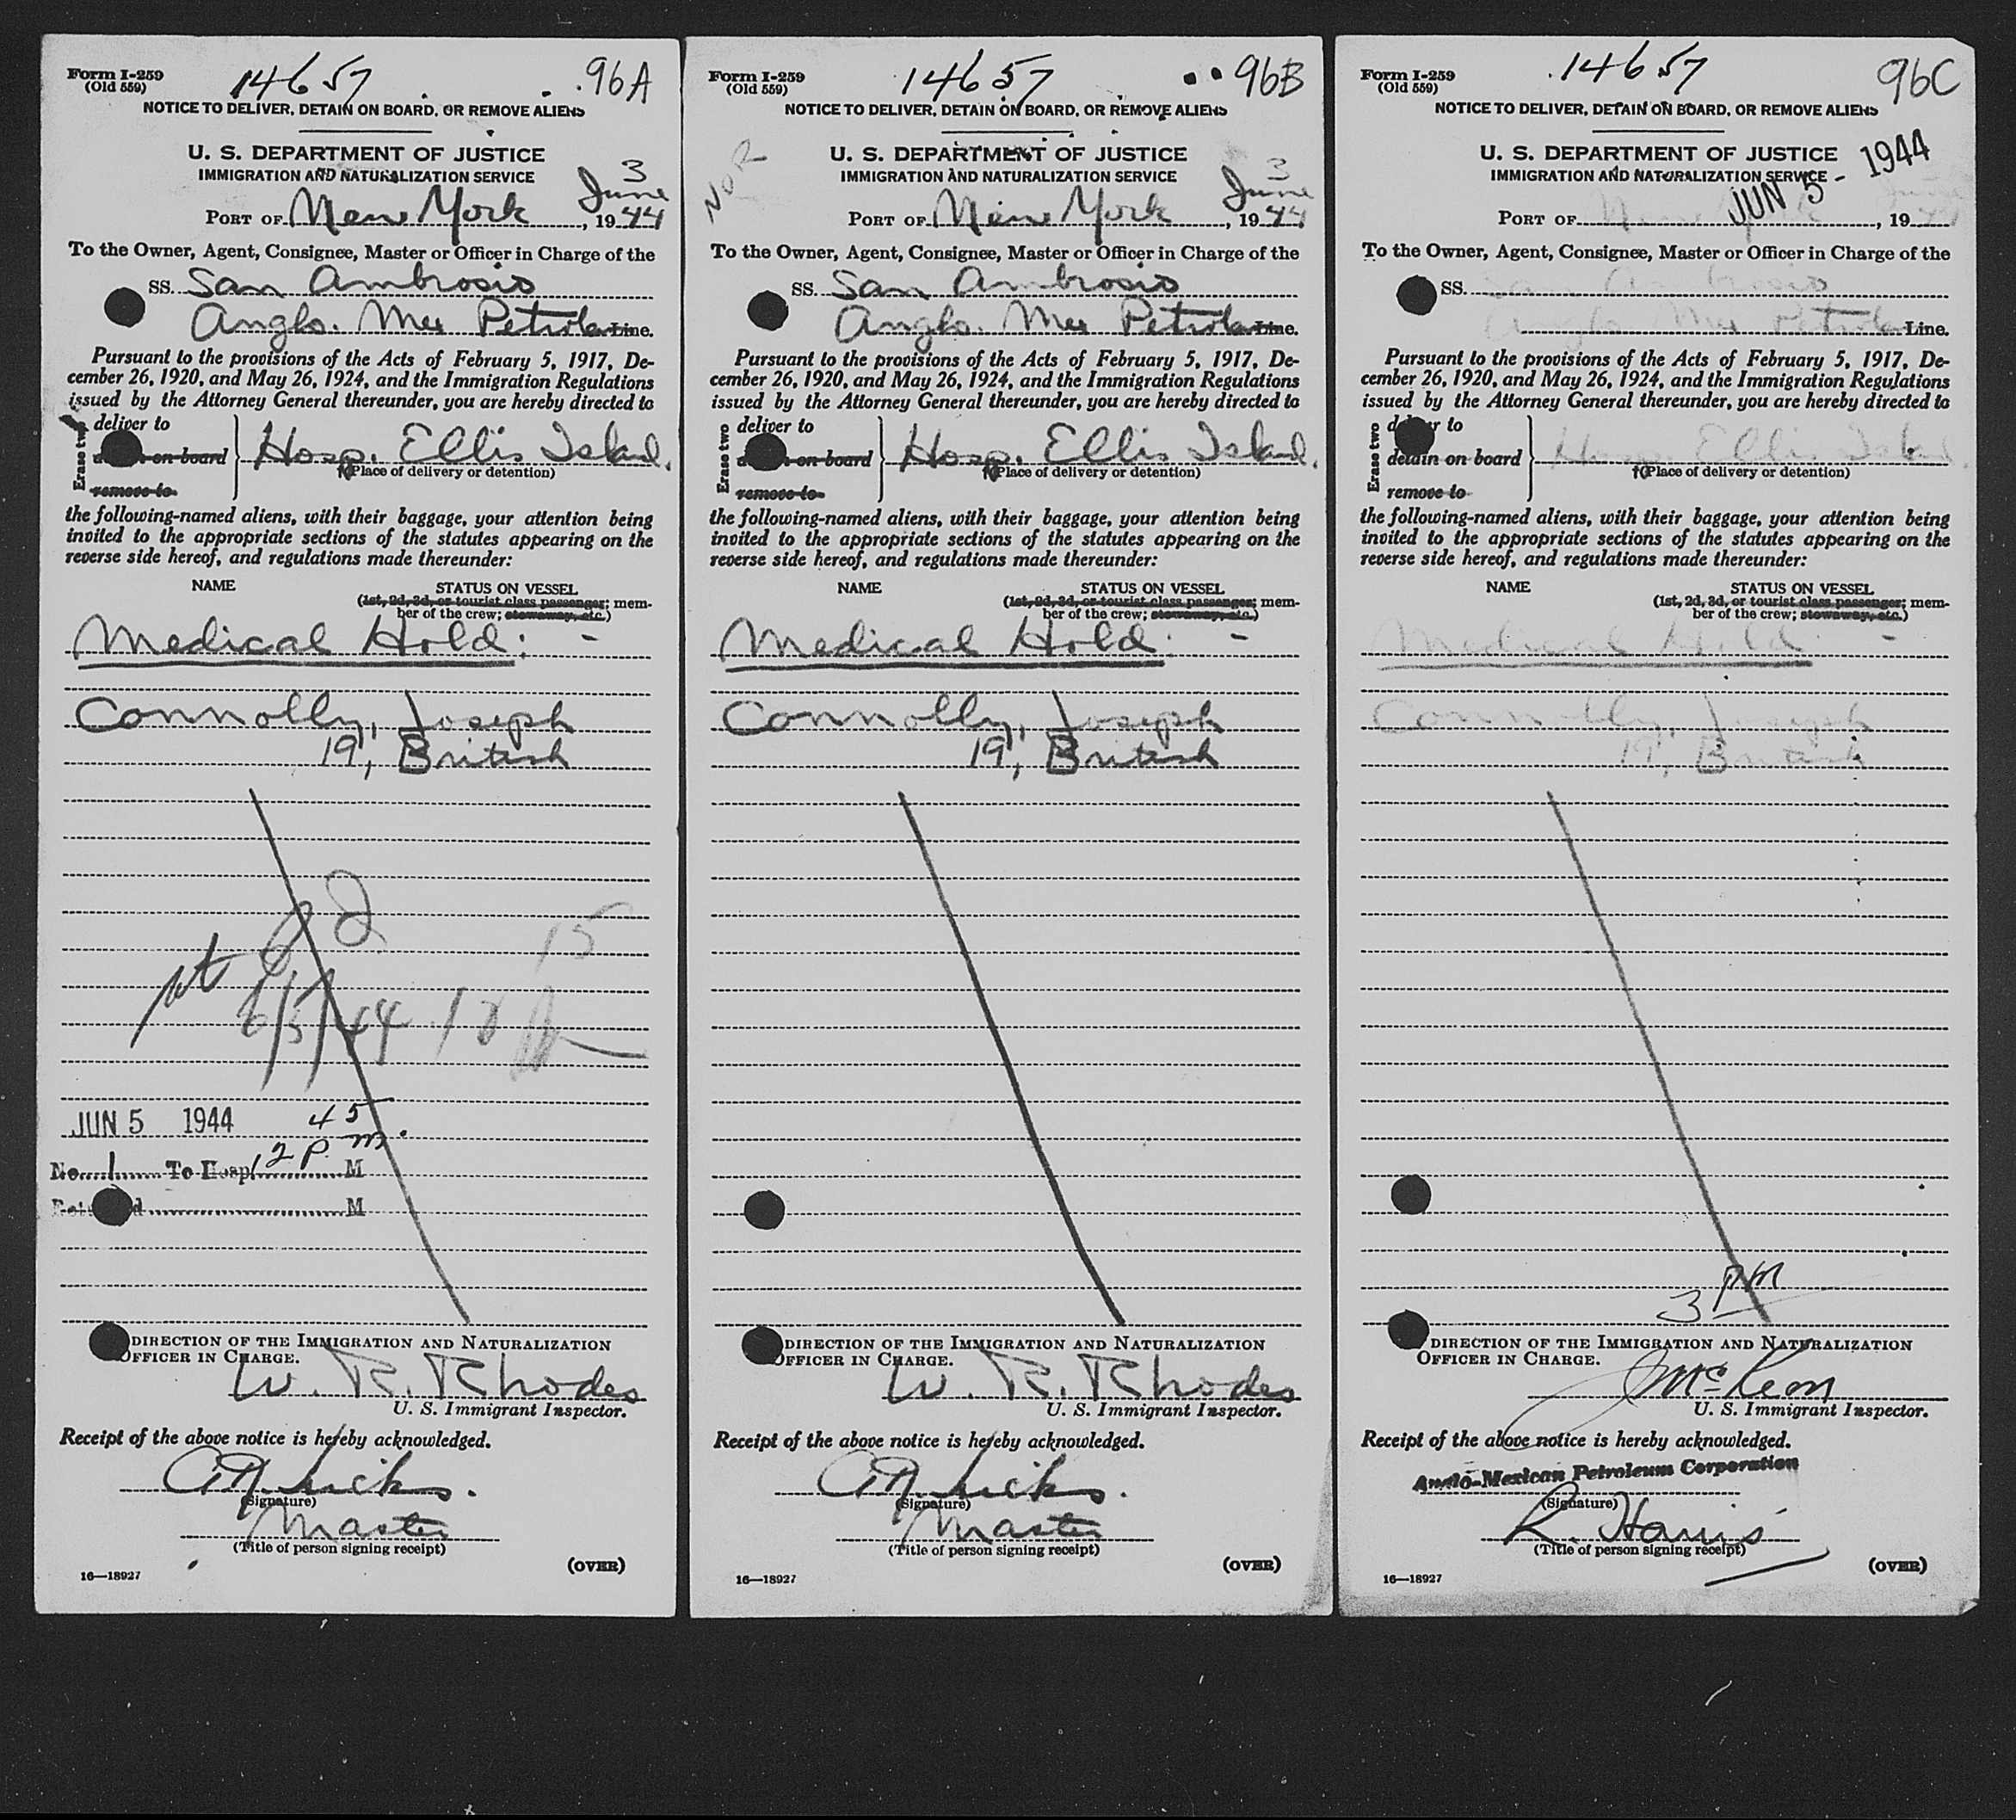 Form I-259
(Old 559)
14657
96A
NOTICE TO DELIVER, DETAIN ON BOARD, OR REMOVE ALIENS
U. S. DEPARTMENT OF JUSTICE
IMMIGRATION AND NATURALIZATION SERVICE
PORT OF New York, June 3 1944
To the Owner, Agent, Consignee, Master or Officer in Charge of the
SS. San Ambrosio
Anglo. Mex Petrola Line.
Pursuant to the provisions of the Acts of February 5, 1917, De-
cember 26, 1920, and May 26, 1924, and the Immigration Regulations
issued by the Attorney General thereunder, you are hereby directed to
Erase two
deliver to
on board
remove to
Hosp. Ellis Island.
(Place of delivery or detention)
the following-named aliens, with their baggage, your attention being
invited to the appropriate sections of the statutes appearing on the
reverse side hereof, and regulations made thereunder:
NAME
STATUS ON VESSEL
(1st, 2d, 3d, or tourist class passenger; mem-
ber of the crew; stowaway, etc.)
Medical Hold: -
Connolly, Joseph
19, British
6/5/44
15
JUN 5 1944
45
No. 1 To Hosp 12 P m. M
M
DIRECTION OF THE IMMIGRATION AND NATURALIZATION
OFFICER IN CHARGE.
W. R. Rhodes
U. S. Immigrant Inspector.
Receipt of the above notice is hereby acknowledged.
(Signature)
Master
(Title of person signing receipt)
16—18927
(OVER)
Form I-259
(Old 559)
14657
96B
NOTICE TO DELIVER, DETAIN ON BOARD, OR REMOVE ALIENS
U. S. DEPARTMENT OF JUSTICE
IMMIGRATION AND NATURALIZATION SERVICE
PORT OF New York, June 3 1944
To the Owner, Agent, Consignee, Master or Officer in Charge of the
SS. San Ambrosio
Anglo. Mex Petrola Line.
Pursuant to the provisions of the Acts of February 5, 1917, De-
cember 26, 1920, and May 26, 1924, and the Immigration Regulations
issued by the Attorney General thereunder, you are hereby directed to
Erase two
deliver to
on board
remove to
Hosp. Ellis Island.
(Place of delivery or detention)
the following-named aliens, with their baggage, your attention being
invited to the appropriate sections of the statutes appearing on the
reverse side hereof, and regulations made thereunder:
NAME
STATUS ON VESSEL
(1st, 2d, 3d, or tourist class passenger; mem-
ber of the crew; stowaway, etc.)
Medical Hold: -
Connolly, Joseph
19, British
DIRECTION OF THE IMMIGRATION AND NATURALIZATION
OFFICER IN CHARGE.
W. R. Rhodes
U. S. Immigrant Inspector.
Receipt of the above notice is hereby acknowledged.
(Signature)
Master
(Title of person signing receipt)
16—18927
(OVER)
Form I-259
(Old 559)
14657
96C
NOTICE TO DELIVER, DETAIN ON BOARD, OR REMOVE ALIENS
U. S. DEPARTMENT OF JUSTICE
IMMIGRATION AND NATURALIZATION SERVICE
JUN 5 - 1944
PORT OF New York, June 1944
To the Owner, Agent, Consignee, Master or Officer in Charge of the
SS. San Ambrosio
Anglo Mex Petrola Line.
Pursuant to the provisions of the Acts of February 5, 1917, De-
cember 26, 1920, and May 26, 1924, and the Immigration Regulations
issued by the Attorney General thereunder, you are hereby directed to
Erase two
to
detain on board
remove to
Hosp. Ellis Island.
(Place of delivery or detention)
the following-named aliens, with their baggage, your attention being
invited to the appropriate sections of the statutes appearing on the
reverse side hereof, and regulations made thereunder:
NAME
STATUS ON VESSEL
(1st, 2d, 3d, or tourist class passenger; mem-
ber of the crew; stowaway, etc.)
Medical Hold -
Connolly, Joseph
19, British
3 PM
DIRECTION OF THE IMMIGRATION AND NATURALIZATION
OFFICER IN CHARGE.
J McKeon
U. S. Immigrant Inspector.
Receipt of the above notice is hereby acknowledged.
Anglo-Mexican Petroleum Corporation
(Signature)
R. Harris
(Title of person signing receipt)
16—18927
(OVER)